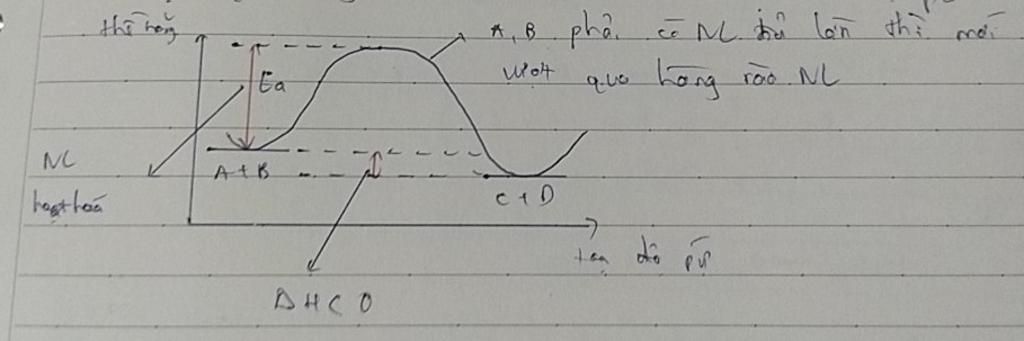 thế năng
A, B phải có NL đủ lớn thì mới
vượt qua hàng rào NL
Ea
NL
hoạt hoá
A + B
C + D
tọa độ pứ
ΔH < 0